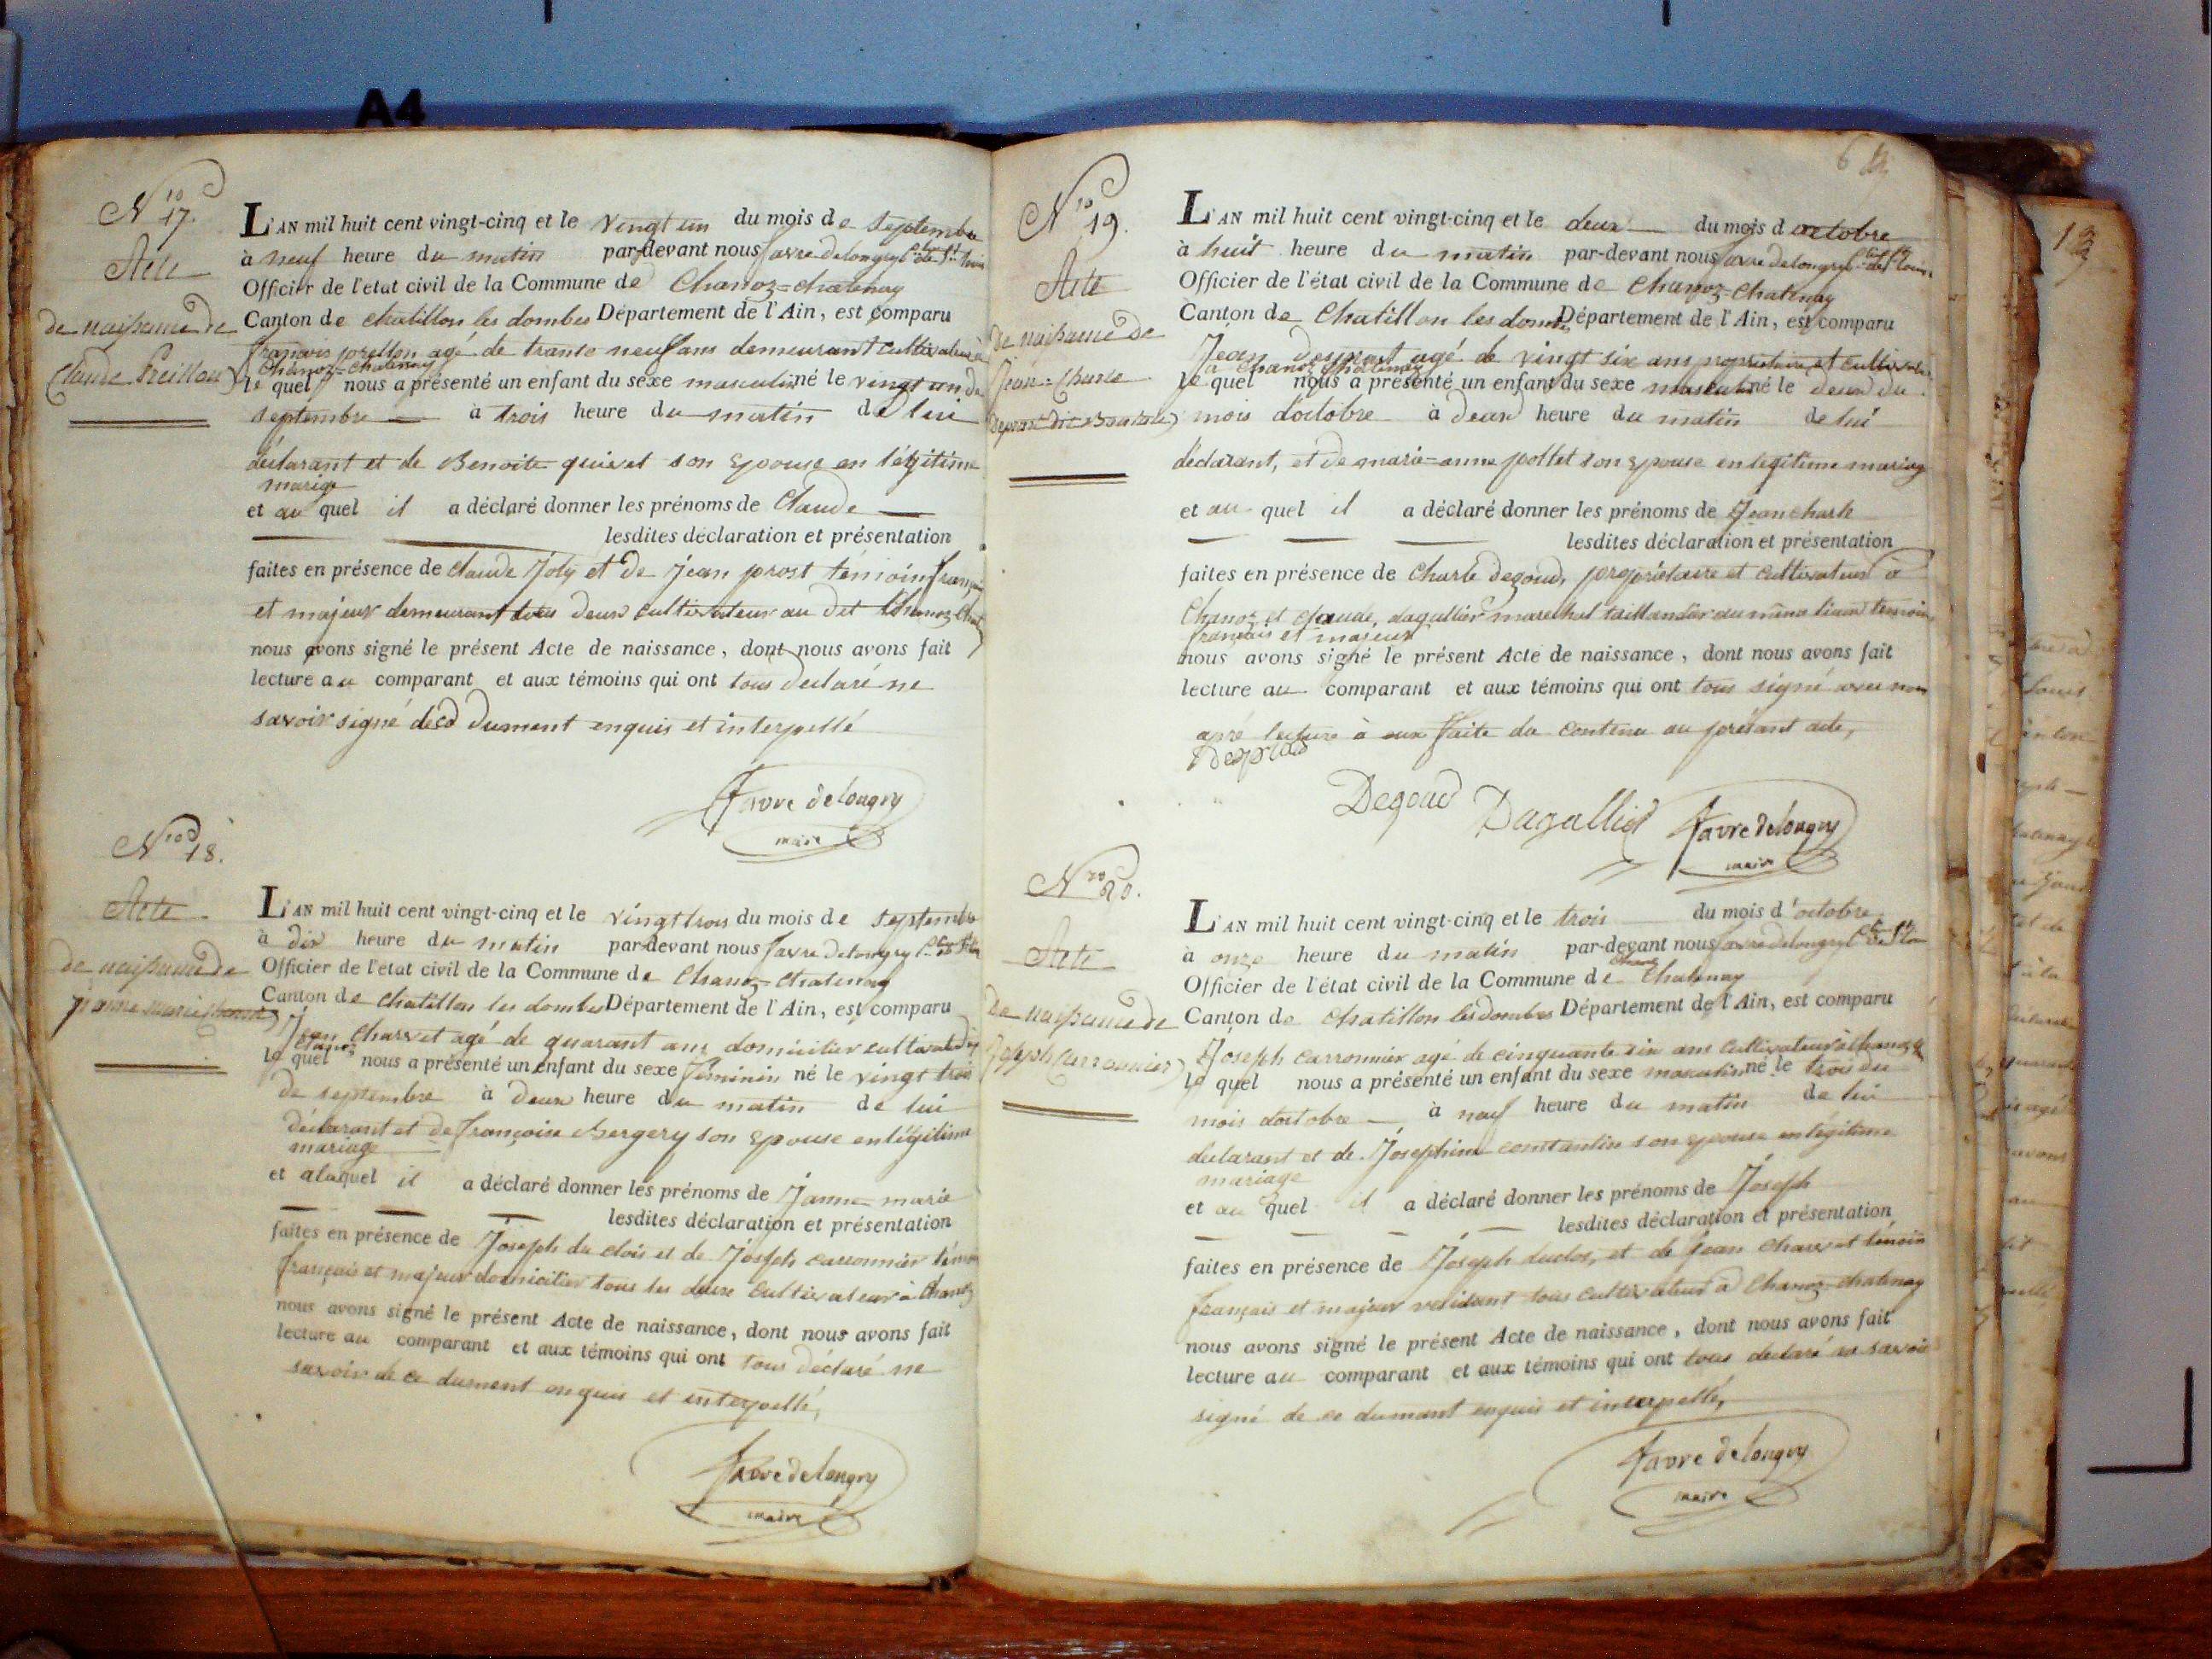 A4
N.ro 17.
Acte
de naissance de
Claude Preillon
L'AN mil huit cent vingt-cinq et le vingt un du mois de septembre
à neuf heure du matin par-devant nous favre delongry
Officier de l'état civil de la Commune de Chanoz=chatenay
Canton de chatillon les dombes Département de l'Ain, est comparu
françois preillon agé de trante neuf ans demeurant cultivateur à
Chanoz=chatenay
le quel nous a présenté un enfant du sexe masculin né le vingt un de
septembre à trois heure du matin de lui
déclarant et de Benoite quivet son epouse en légitime
mariage
et au quel il a déclaré donner les prénoms de Claude
lesdites déclaration et présentation
faites en présence de claude Joly et de jean prost témoin françois
et majeur demeurant tous deux cultivateur au dit Chanoz Chat
nous avons signé le présent Acte de naissance, dont nous avons fait
lecture au comparant et aux témoins qui ont tous declaré ne
savoir signé de ce dument enquis et interpellé
favre delongry
maire
N.ro 18.
Acte
de naissance de
jeanne marie
L'AN mil huit cent vingt-cinq et le vingt trois du mois de septembre
à dix heure du matin par-devant nous favre delongry
Officier de l'état civil de la Commune de Chanoz=chatenay
Canton de chatillon les dombes Département de l'Ain, est comparu
Jean Charvet agé de quarant ans domicilier cultivateur
Chanoz
le quel nous a présenté un enfant du sexe féminin né le vingt trois
de septembre à deux heure du matin de lui
déclarant et de françoise Bergery son epouse en légitime
mariage
et alaquel il a déclaré donner les prénoms de Janne=marie
lesdites déclaration et présentation
faites en présence de Joseph du clois et de Joseph carronnier témoin
français et majeur domicilier tous les deux cultivateur à Chanoz
nous avons signé le présent Acte de naissance, dont nous avons fait
lecture au comparant et aux témoins qui ont tous déclaré ne
savoir de ce dument enquis et interpellé,
favre delongry
maire
6
N.ro 19.
Acte
de naissance de
jean=Charle
L'AN mil huit cent vingt-cinq et le deux du mois d octobre
à huit heure du matin par-devant nous favre delongry
Officier de l'état civil de la Commune de Chanoz-Chatenay
Canton de Chatillon les dombes Département de l'Ain, est comparu
Jean agé de vingt six ans proprietaire et cultivateur
à Chanoz Chatenay
le quel nous a présenté un enfant du sexe masculin né le deux du
mois d'octobre à deux heure du matin de lui
déclarant, et de marie=anne pollet son epouse en legitime mariage
et au quel il a déclaré donner les prénoms de Jean charle
lesdites déclaration et présentation
faites en présence de Charle degoud, propriétaire et cultivateur à
Chanoz et claude, dagallier marechal taillandier au même liaux temoin
français et majeur
nous avons signé le présent Acte de naissance, dont nous avons fait
lecture au comparant et aux témoins qui ont tous signé avec nous
apré lecture à eux faite du contenu au présant acte,
Degoud Dagallier favre delongry
maire
N.ro 20.
Acte
de naissance de
joseph Carronnier
L'AN mil huit cent vingt-cinq et le trois du mois d'octobre
à onze heure du matin par-devant nous favre delongry
Chanoz
Officier de l'état civil de la Commune de Chatenay
Canton de Chatillon les dombes Département de l'Ain, est comparu
Joseph carronnier agé de cinquante six ans cultivateur à Chanoz
le quel nous a présenté un enfant du sexe masculin né le trois du
mois d'octobre à neuf heure du matin de lui
declarant et de Josephine constantin son epouse en légitime
mariage
et au quel il a déclaré donner les prénoms de Joseph
lesdites déclaration et présentation
faites en présence de Joseph duclos, et de jean Charvet témoin
français et majeur résidant tous cultivateur à Chanoz-chatenay
nous avons signé le présent Acte de naissance, dont nous avons fait
lecture au comparant et aux témoins qui ont tous declaré ne savoir
signé de ce dumant enquis et interpellé,
favre delongry
maire